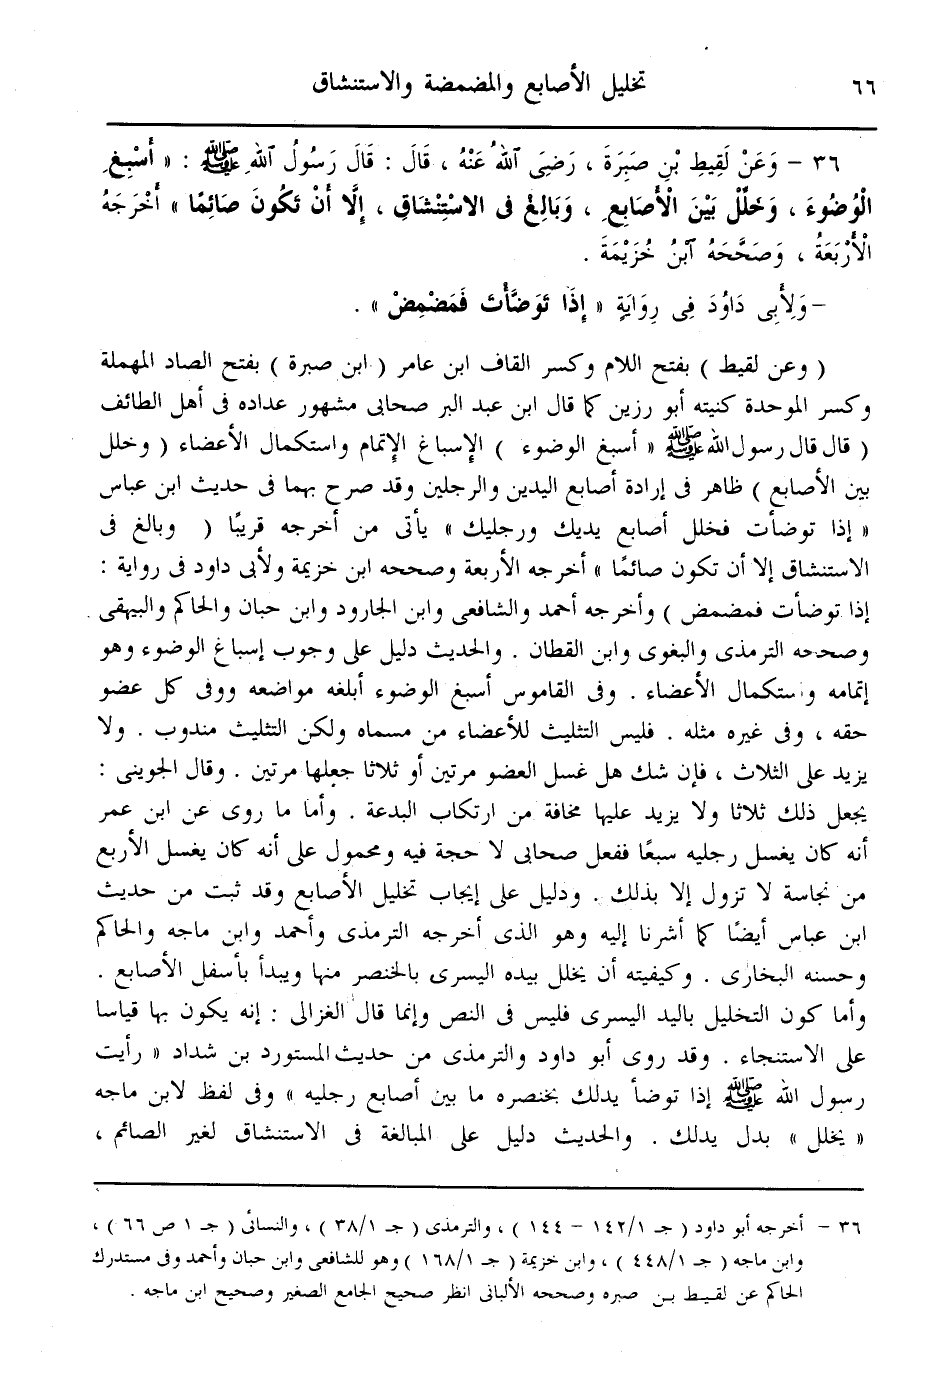 ٦٦ تخليل الأصابع والمضمضة والاستنشاق
٣٦ – وَعَنْ لَقِيطِ بْنِ صَبِرَةَ ، رَضِىَ ٱللهُ عَنْهُ ، قَالَ : قَالَ رَسُولُ ٱللهِ ﷺ : « أَسْبِغِ
الْوُضُوءَ ، وَخَلِّلْ بَيْنَ الْأَصَابِعِ ، وَبَالِغْ فى الاسْتِنْشَاقِ ، إِلَّا أَنْ تَكُونَ صَائِمًا » أَخْرَجَهُ
الْأَرْبَعَةُ ، وَصَحَّحَهُ ٱبْنُ خُزَيْمَةَ .
– وَلِأَبِى دَاوُدَ فِى رِوَايَةٍ « إِذَا تَوَضَّأْتَ فَمَضْمِضْ » .
( وعن لقيط ) بفتح اللام وكسر القاف ابن عامر ( ابن صبرة ) بفتح الصاد المهملة
وكسر الموحدة كنيته أبو رزين كما قال ابن عبد البر صحابى مشهور عداده فى أهل الطائف
( قال قال رسول الله ﷺ « أسبغ الوضوء ) الإسباغ الإتمام واستكمال الأعضاء ( وخلل
بين الأصابع ) ظاهر فى إرادة أصابع اليدين والرجلين وقد صرح بهما فى حديث ابن عباس
« إذا توضأت فخلل أصابع يديك ورجليك » يأتى من أخرجه قريبًا ( وبالغ فى
الاستنشاق إلا أن تكون صائمًا » أخرجه الأربعة وصححه ابن خزيمة ولأبى داود فى رواية :
إذا توضأت فمضمض ) وأخرجه أحمد والشافعى وابن الجارود وابن حبان والحاكم والبيهقى .
وصححه الترمذى والبغوى وابن القطان . والحديث دليل على وجوب إسباغ الوضوء وهو
إتمامه واستكمال الأعضاء . وفى القاموس أسبغ الوضوء أبلغه مواضعه ووفى كل عضو
حقه ، وفى غيره مثله . فليس التثليث للأعضاء من مسماه ولكن التثليث مندوب . ولا
يزيد على الثلاث ، فإن شك هل غسل العضو مرتين أو ثلاثا جعلها مرتين . وقال الجوينى :
يجعل ذلك ثلاثا ولا يزيد عليها مخافة من ارتكاب البدعة . وأما ما روى عن ابن عمر
أنه كان يغسل رجليه سبعًا ففعل صحابى لا حجة فيه ومحمول على أنه كان يغسل الأربع
من نجاسة لا تزول إلا بذلك . ودليل على إيجاب تخليل الأصابع وقد ثبت من حديث
ابن عباس أيضًا كما أشرنا إليه وهو الذى أخرجه الترمذى وأحمد وابن ماجه والحاكم
وحسنه البخارى . وكيفيته أن يخلل بيده اليسرى بالخنصر منها ويبدأ بأسفل الأصابع .
وأما كون التخليل باليد اليسرى فليس فى النص وإنما قال الغزالى : إنه يكون بها قياسا
على الاستنجاء . وقد روى أبو داود والترمذى من حديث المستورد بن شداد « رأيت
رسول الله ﷺ إذا توضأ يدلك بخنصره ما بين أصابع رجليه » وفى لفظ لابن ماجه
« يخلل » بدل يدلك . والحديث دليل على المبالغة فى الاستنشاق لغير الصائم ،
٣٦ – أخرجه أبو داود ( جـ ١٤٢/١ – ١٤٤ ) ، والترمذى ( جـ ٣٨/١ ) ، والنسائى ( جـ ١ ص ٦٦ ) ،
وابن ماجه ( جـ ٤٤٨/١ ) ، وابن خزيمة ( جـ ١٦٨/١ ) وهو للشافعى وابن حبان وأحمد وفى مستدرك
الحاكم عن لقيط بن صبره وصححه الألبانى انظر صحيح الجامع الصغير وصحيح ابن ماجه .